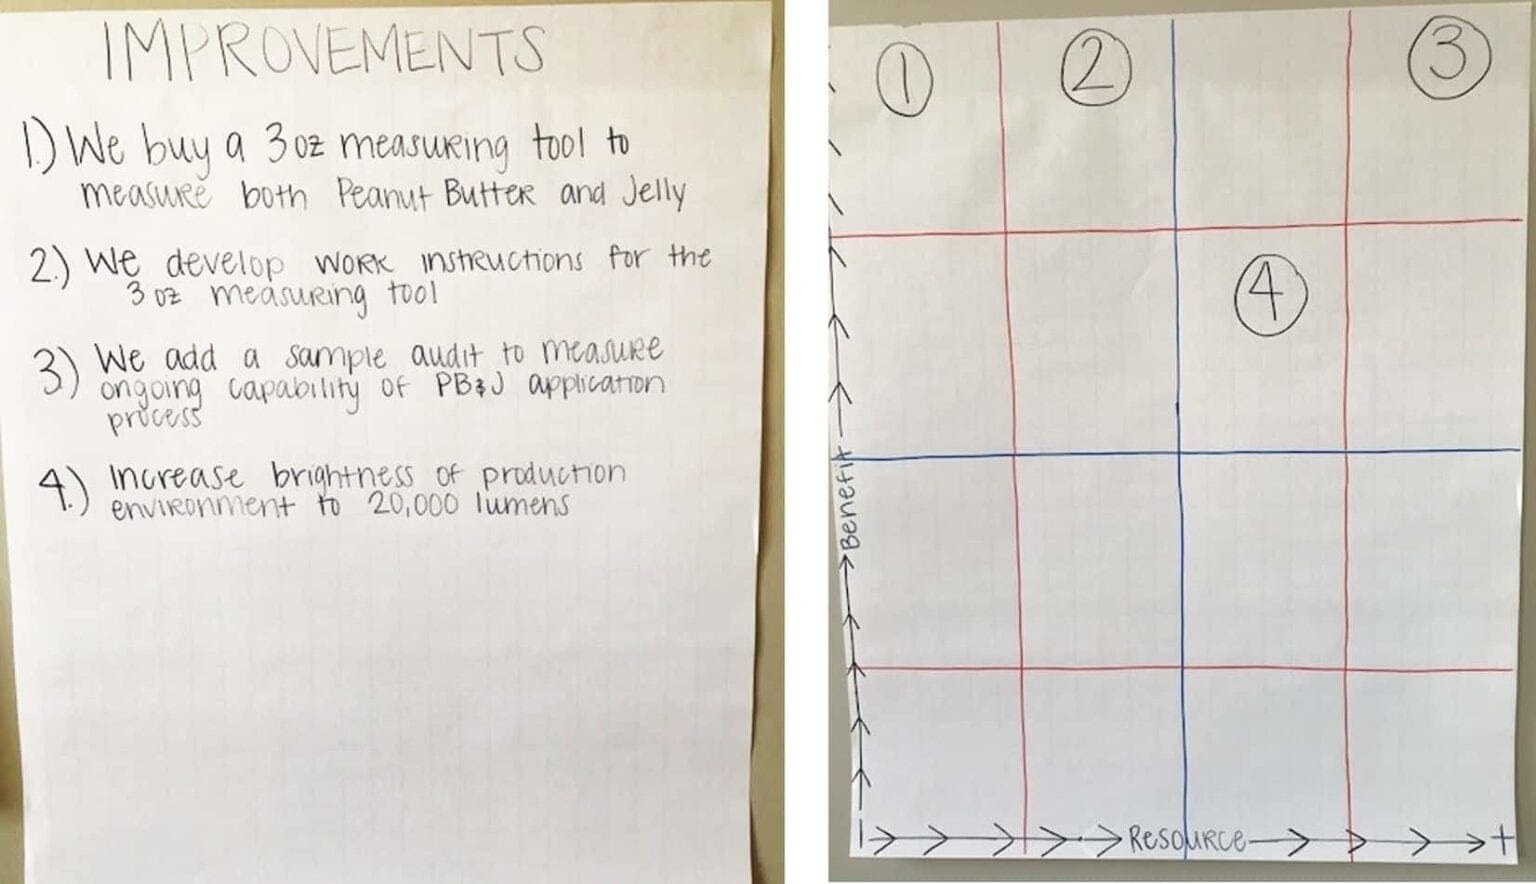 IMPROVEMENTS
1.) We buy a 3 oz measuring tool to
measure both Peanut Butter and Jelly
2.) We develop work instructions for the
3 oz measuring tool
3.) We add a sample audit to measure
ongoing capability of PB&J application
process
4.) Increase brightness of production
environment to 20,000 lumens
1
2
3
4
Benefit
Resource
+